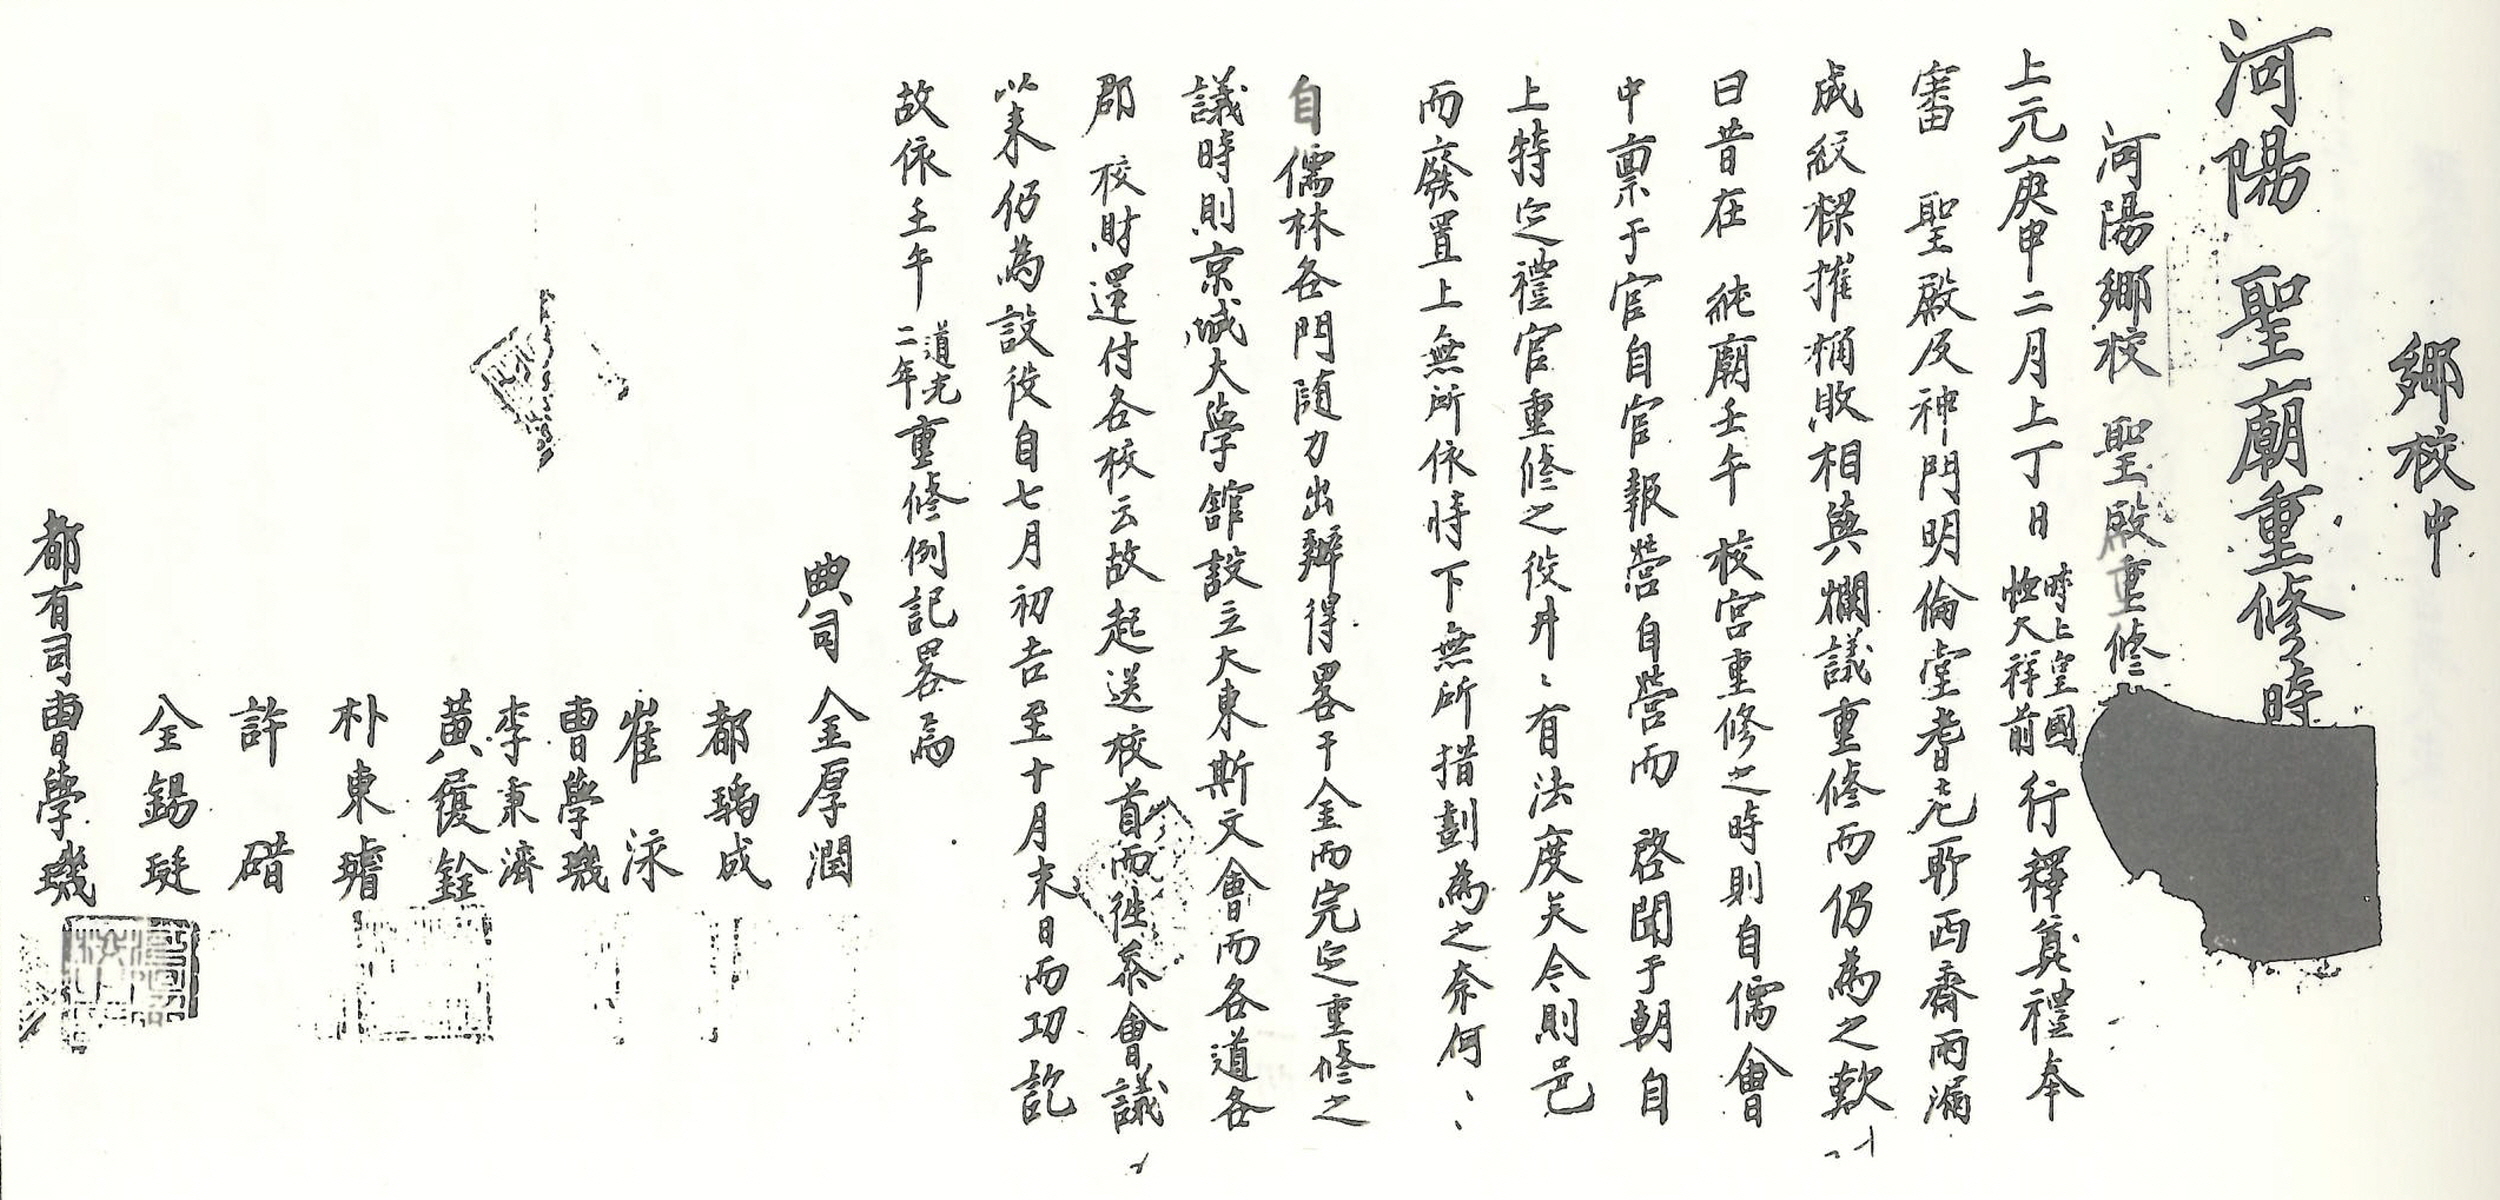 鄉校中
河陽 聖廟重修時
河陽鄉校 聖殿重修
上元庚申二月上丁日 時上皇國恤大祥前 行釋奠禮奉
審 聖殿及神門明倫堂耆老所西齋雨漏
成紋樑摧桷敗相與爛議重修而仍為之歎
曰昔在 純廟壬午 校宮重修之時則自儒會
中稟于官自官報營自營而 啓聞于朝自
上特定禮官重修之役井〻有法度矣今則邑
而廢置上無所依恃下無所措劃為之奈何〻〻
自儒林各門随力出辦得畧干金而完定重修之
議時則京城大學舘設立大東斯文會而各道各
郡 校財還付各校云故起送校首而徃叅會議
以来仍為設役自七月初吉至十月末日而功訖
故依壬午 道光二年 重修例記畧焉
典司 金厚潤
都瑀成
崔 泳
曺學璣
李秉濟
黃履銓
朴東璿
許 碏
全錫珽
都有司曺學璣